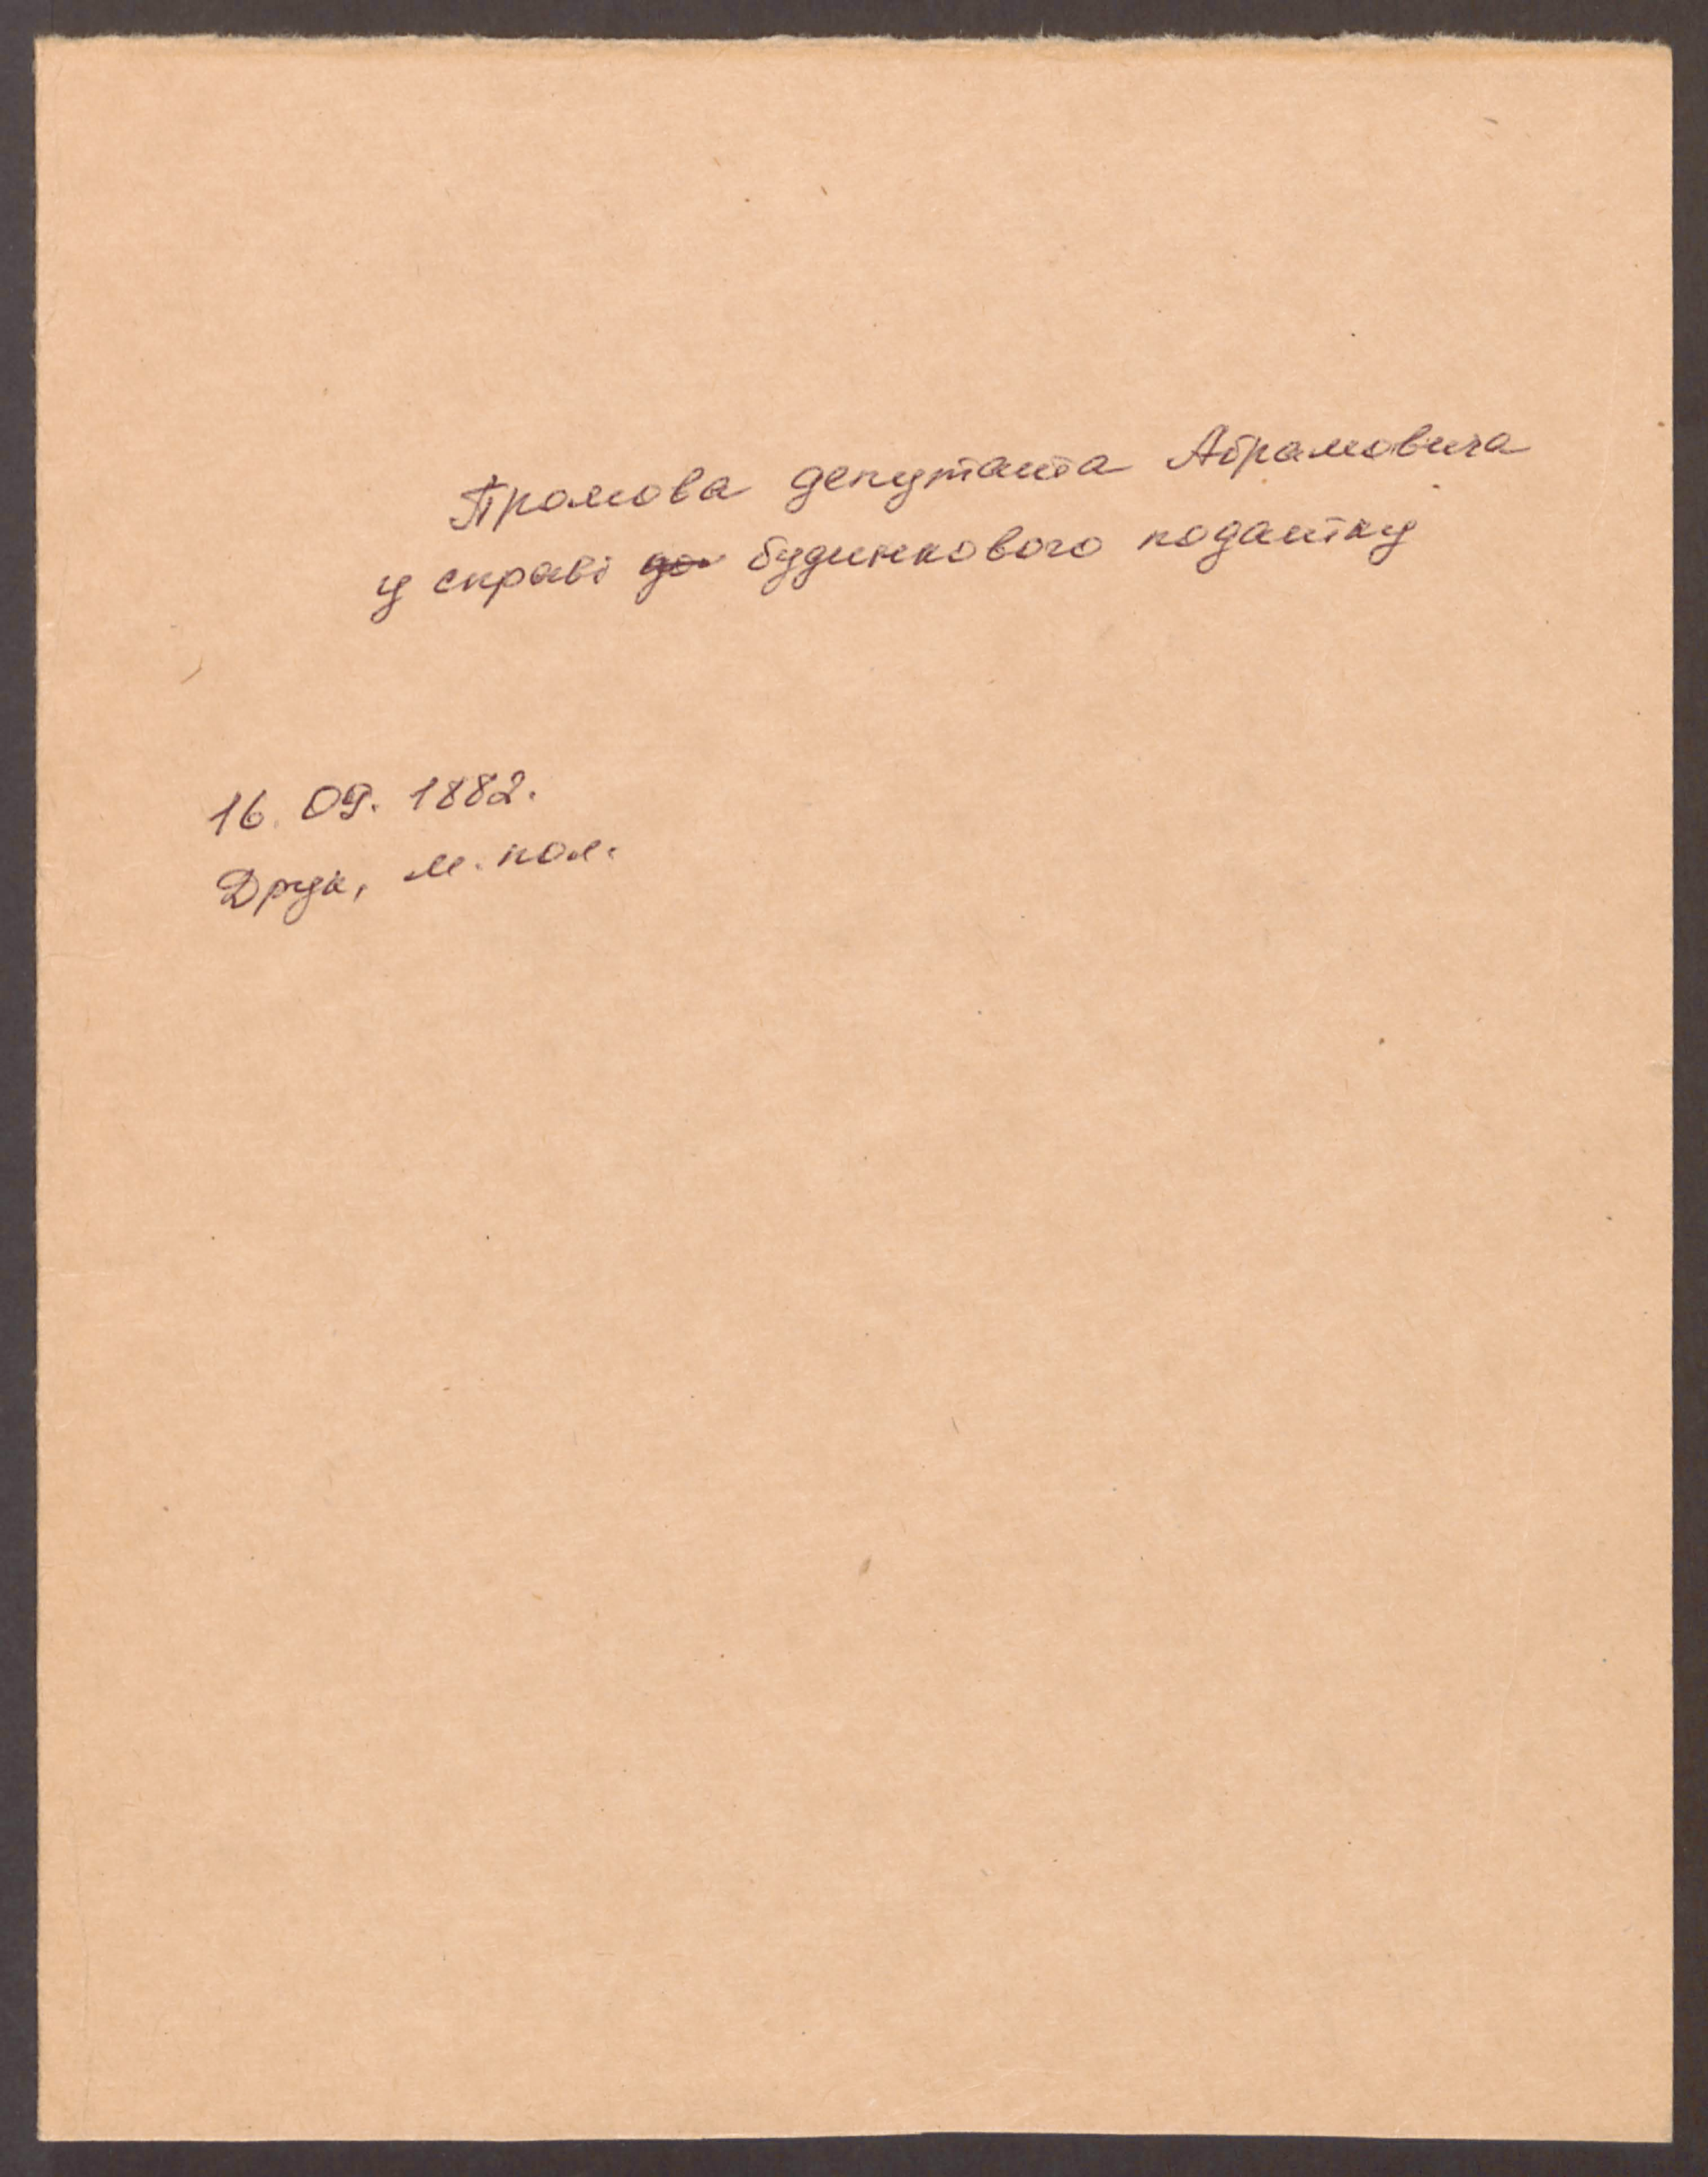 Промова депутата Абрамовича
у справі до будинкового податку
16.09.1882.
Друк, м. пол.